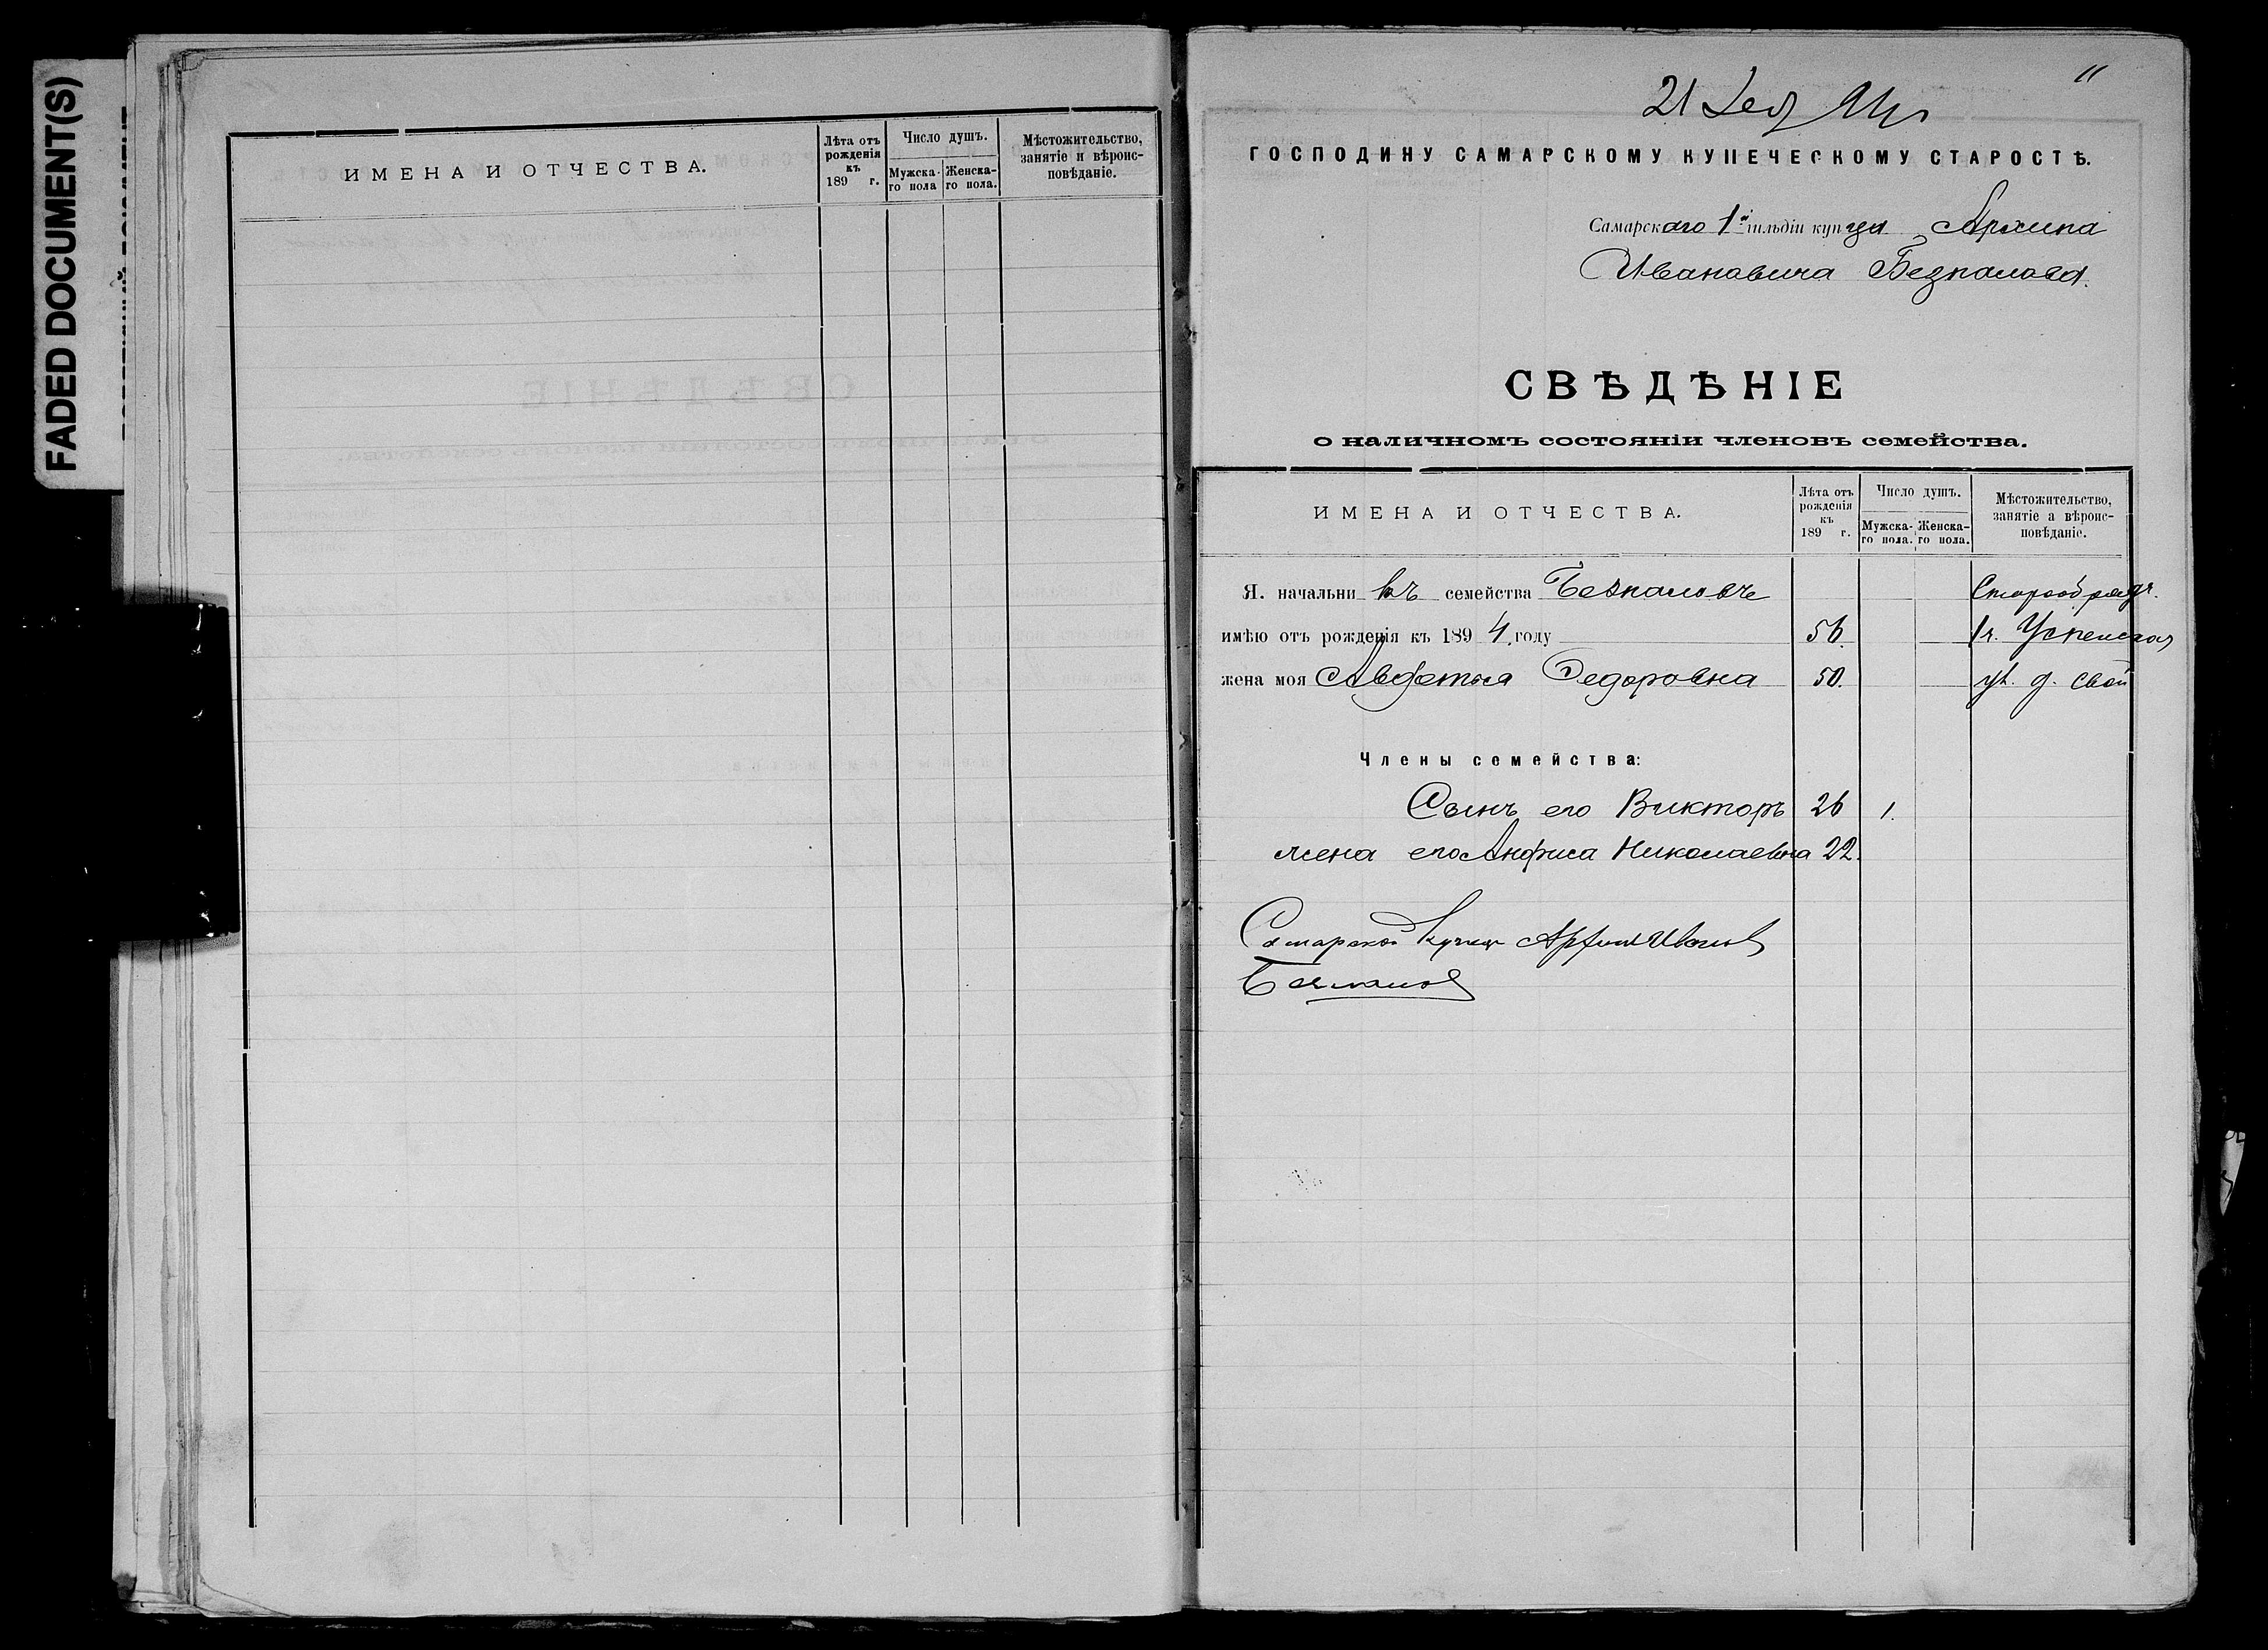 FADED DOCUMENT(S)
ИМЕНА И ОТЧЕСТВА.
Лѣта отъ рожденія къ 189 г.
Число душъ.
Мужска-го пола
Женска-го пола.
Мѣстожительство, занятіе и вѣроис-повѣданіе.
11
21
ГОСПОДИНУ САМАРСКОМУ КУПЕЧЕСКОМУ СТАРОСТѢ.
Самарскаго 1й гильдіи купца Архипа
Ивановича Безпалова.
СВѢДѢНІЕ
о наличномъ состояніи членовъ семейства.
ИМЕНА И ОТЧЕСТВА.
Лѣта отъ рожденія къ 189 г.
Число душъ.
Мужска-го пола.
Женска-го пола.
Мѣстожительство, занятіе а вѣроис-повѣданіе.
Я. начальникъ семейства Безпаловъ Старообрядч.
имѣю отъ рожденія къ 1894 году 56. Успенская
жена моя Авдотья Федоровна 50. ул. д. свой
Члены семейства:
Сынъ его Викторъ 26 1.
жена его Анфиса Николаевна 22.
Самарской Купец Архип Иванов
Безпалов